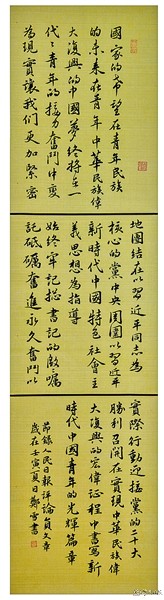 國家的希望在青年民族
的未來在青年中華民族偉
大復興的中國夢終將在一
代代青年的接力奮鬥中變
為現實讓我們更加緊密
地團結在以習近平同志為
核心的黨中央周圍以習近平
新時代中國特色社會主
義思想為指導
始終牢記總書記的殷囑
託砥礪奮進永久奮鬥以
實際行動迎接黨的二十大
勝利召開在實現中華民族偉
大復興的宏偉征程中書寫新
時代中國青年的光輝篇章
節錄人民日報評論員文章
歲在壬寅夏日鄭雪書